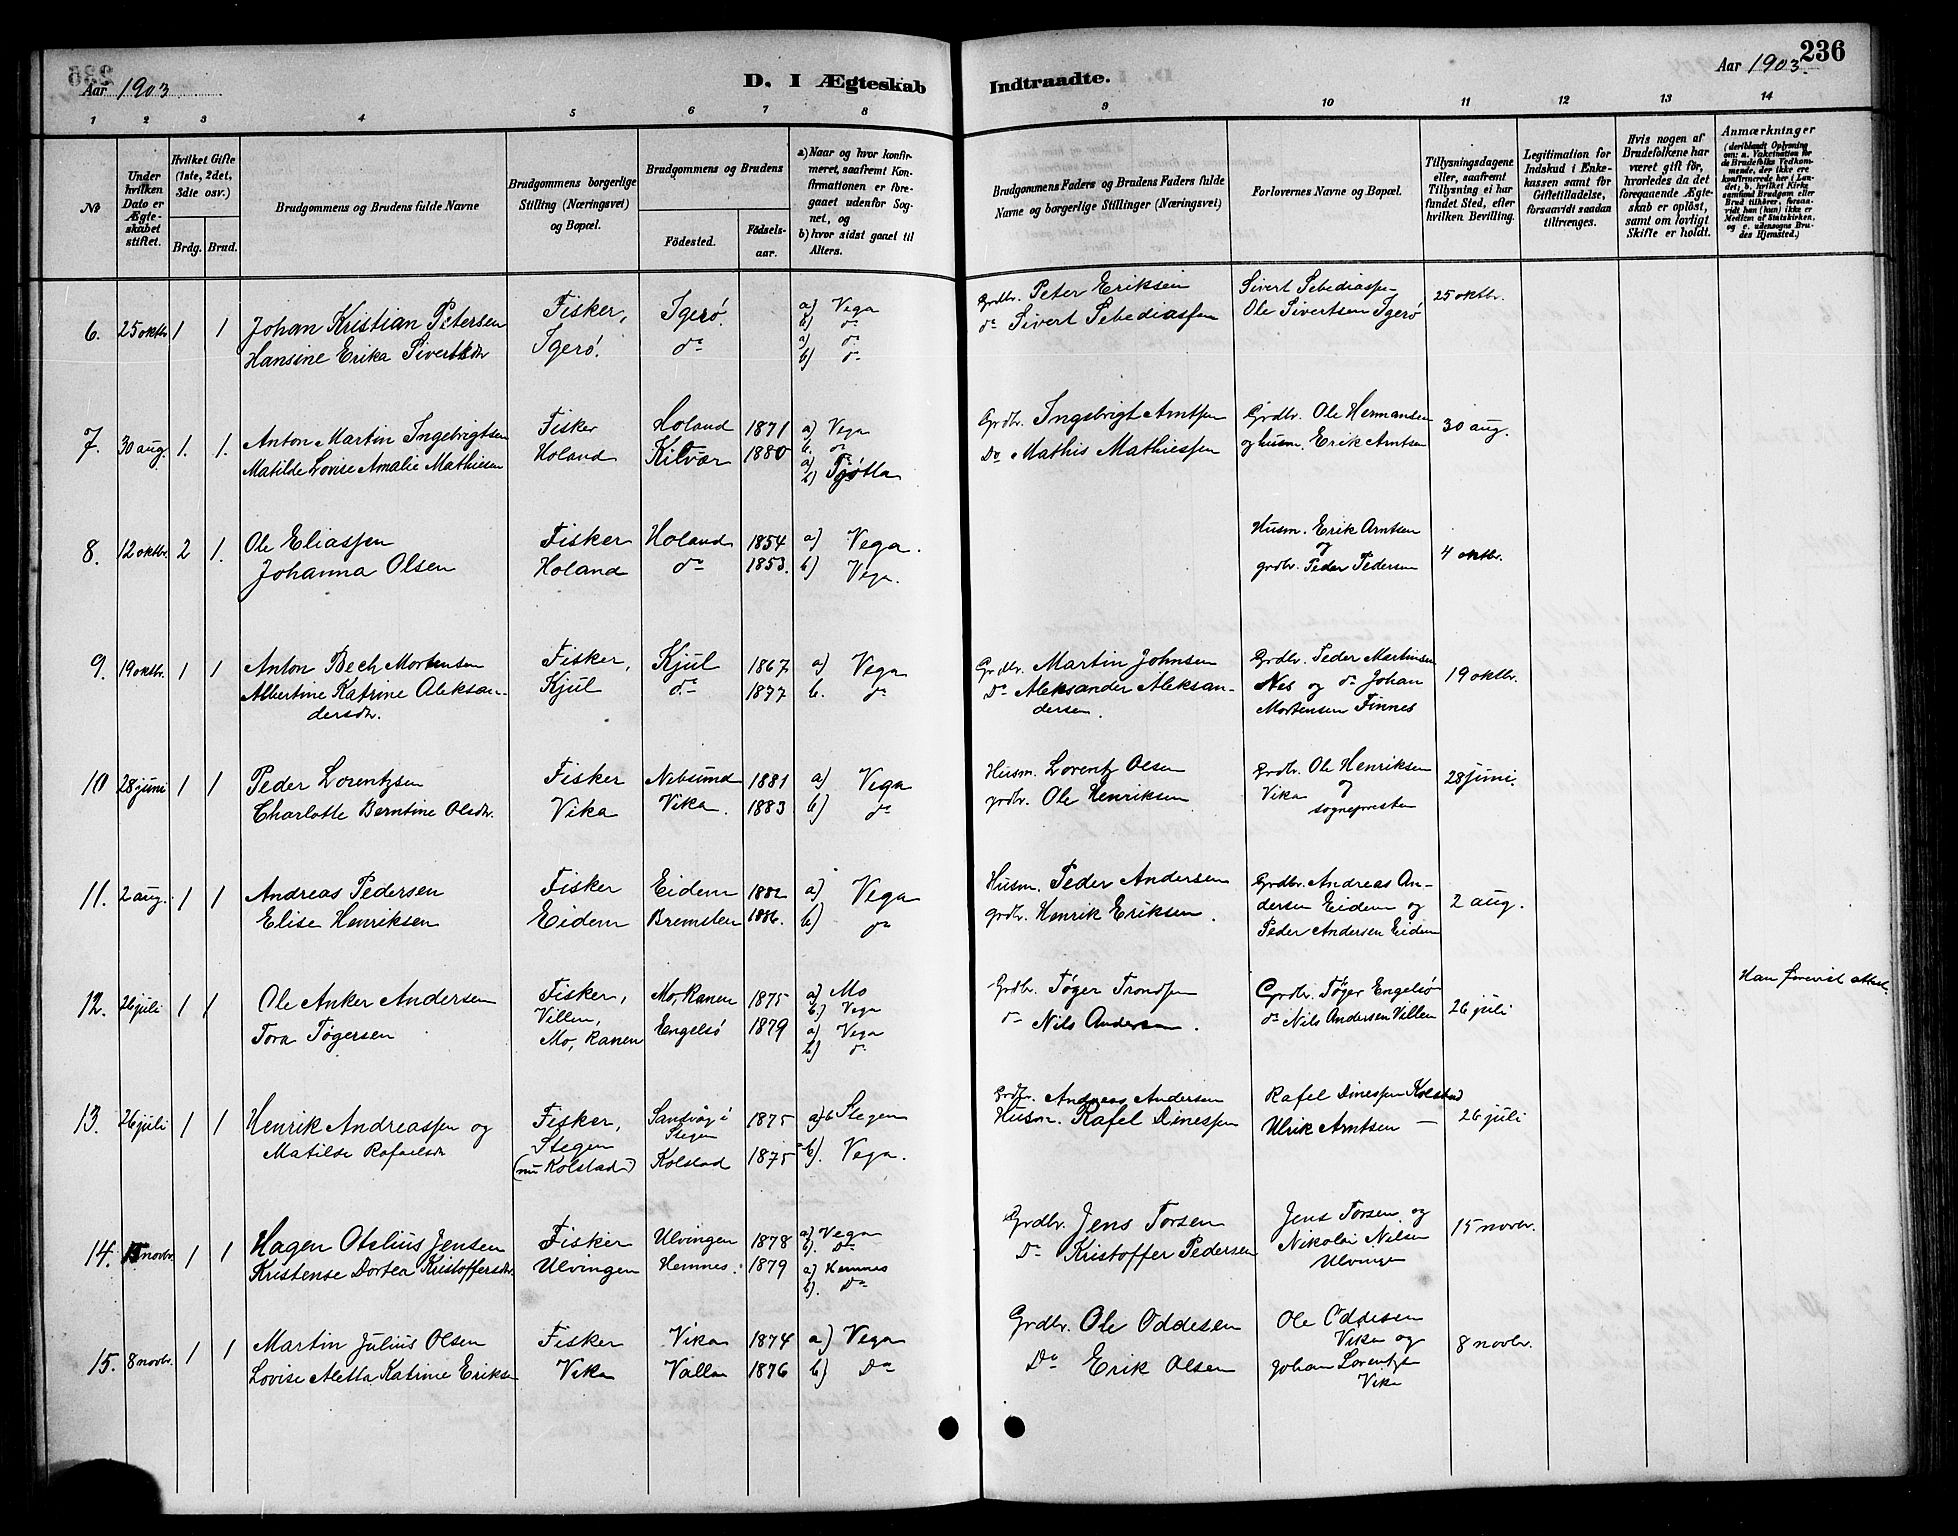 236
Aar 1903
D. I Ægteskab Indtraadte.
Aar 1903.
1 2 3 4 5 6 7 8 9 10 11 12 13 14
No
Under hvilken Dato er Ægteskabet stiftet.
Hvilket Gifte (1ste, 2det, 3die osv.)
Brdg. Brud.
Brudgommens og Brudens fulde Navne
Brudgommens borgerlige Stilling (Næringsvei) og Bopæl.
Brudgommens og Brudens
Födested.
Födselsaar.
a) Naar og hvor konfirmeret, saafremt Konfirmationen er foregaaet udenfor Sognet, og
b) hvor sidst gaaet til Alters.
Brudgommens Faders og Brudens Faders fulde Navne og borgerlige Stillinger (Næringsvei)
Forlovernes Navne og Bopæl.
Tillysningsdagene eller, saafremt Tillysning ei har fundet Sted, efter hvilken Bevilling.
Legitimation for Indskud i Enkekassen samt for Giftetilladelse, forsaavidt saadan tiltrænges.
Hvis nogen af Brudefolkene har været gift för, hvorledes da det foregaaende Ægteskab er oplöst, samt om lovligt Skifte er holdt.
Anmærkninger (deriblandt Oplysning om: a. Vakcination for de Brudefolks Vedkommende, der ikke ere konfirmerede her i Landet; b. hvilket Kirkesamfund Brudgom eller Brud tilhörer, forsaavidt han (hun) ikke er Medlem af Statskirken, og c. udensogns Brudes Hjemsted.)
6. 25 oktbr 1 1 Johan Kristian Petersen Fisker, Igerø. a) Vega Grdbr. Peter Eriksen Sivert Sebediassen 25 oktbr.
b) do
Hansine Erika Sivertsdr Igerø. do a) do do Sivert Sebediassen Ole Sivertsen Igerø
b) do
7. 30 aug. 1. 1. Anton Martin Ingebrigtsen Fisker Holand 1871 a) Vega Grdbr. Ingebrigt Arntsen Grdbr. Ole Hermansen 30 aug.
b. do
Matilde Lovise Amalie Mathiesen Holand Kilvær 1880 a) do Do Mathis Mathiessen og husm. Erik Arntsen
b) Tjøtta
8. 12 oktbr. 2 1. Ole Eliassen Fisker Holand 1854 a) Vega. Husm. Erik Arntsen 4 oktbr.
og
Johanna Olsen Holand do 1853. b) Vega. grdbr. Peder Pedersen
9. 19 oktbr. 1 1 Anton Bech Mortensen Fisker, Kjul 1867 a) Vega Grdbr. Martin Johnsen Grdbr. Peder Martinsen 19 oktbr.
Albertine Katrine Aleksan- Kjul do 1877 b. do Do Aleksander Aleksan- Nes og do Johan
dersdr. dersen. Mortensen Finnes
10 28 juni 1 1 Peder Lorentzsen Fisker Nebsund 1881 a) Vega Husm. Lorentz Olsen Grdbr. Ole Henriksen 28 juni.
Charlotte Berntine Olsdr. Vika Vika. 1883 b) do grdbr. Ole Henriksen Vika og
sognepresten
11. 2 aug. 1 1 Andreas Pedersen Fisker Eidem 1882 a) Vega Husm. Peder Andersen Grdbr. Andreas An- 2 aug.
Elise Henriksen Eidem Bremsten 1886. b) do grdbr. Henrik Eriksen. dersen Eidem og
Peder Andersen Eidem
12. 26 juli 1 1 Ole Anker Andersen Fisker, Mo, Ranen 1875 a) Mo Grdbr. Tøger Trondsen Grdbr. Tøger Engelsø 26 juli Han forevist attest.
Villen, b.) Vega
Tora Tøgersen Mo, Ranen Engelsø 1879 a) Vega do Nils Andersen. do Nils Andersen Villen
b) do
13. 26 juli 1 1 Henrik Andreassen og Fisker, Sandvåg i 1875 a) b Stegen Grdbr. Andreas Andersen Rafel Dinessen Kolstad 26 juli
Stegen Stegen
Matilde Rafaelsdr (nu Kolstad) Kolstad 1875 b). Vega. Husm. Rafel Dinessen Ulrik Arntsen —
14. 15 novbr. 1 1 Hagen Otelius Jensen Fisker Ulvingen 1878 a) Vega Grdbr. Jens Torsen Jens Torsen og 15 novbr.
b). Do
Kristense Dortea Kristoffersdr. Ulvingen Hemnes. 1879 a) Hemnes Do Kristoffer Pedersen Nikolai Nilsen
b). Do Ulvingen
15. 8 novbr. 1 1 Martin Julius Olsen Fisker Vika 1874 a) Vega Grdbr. Ole Oddesen Ole Oddesen 8 novbr.
Vika og
Lovise Aletta Katrine Eriksen Vika Valla 1876 b) Do Do Erik Olsen Johan Lorentzs
Vika